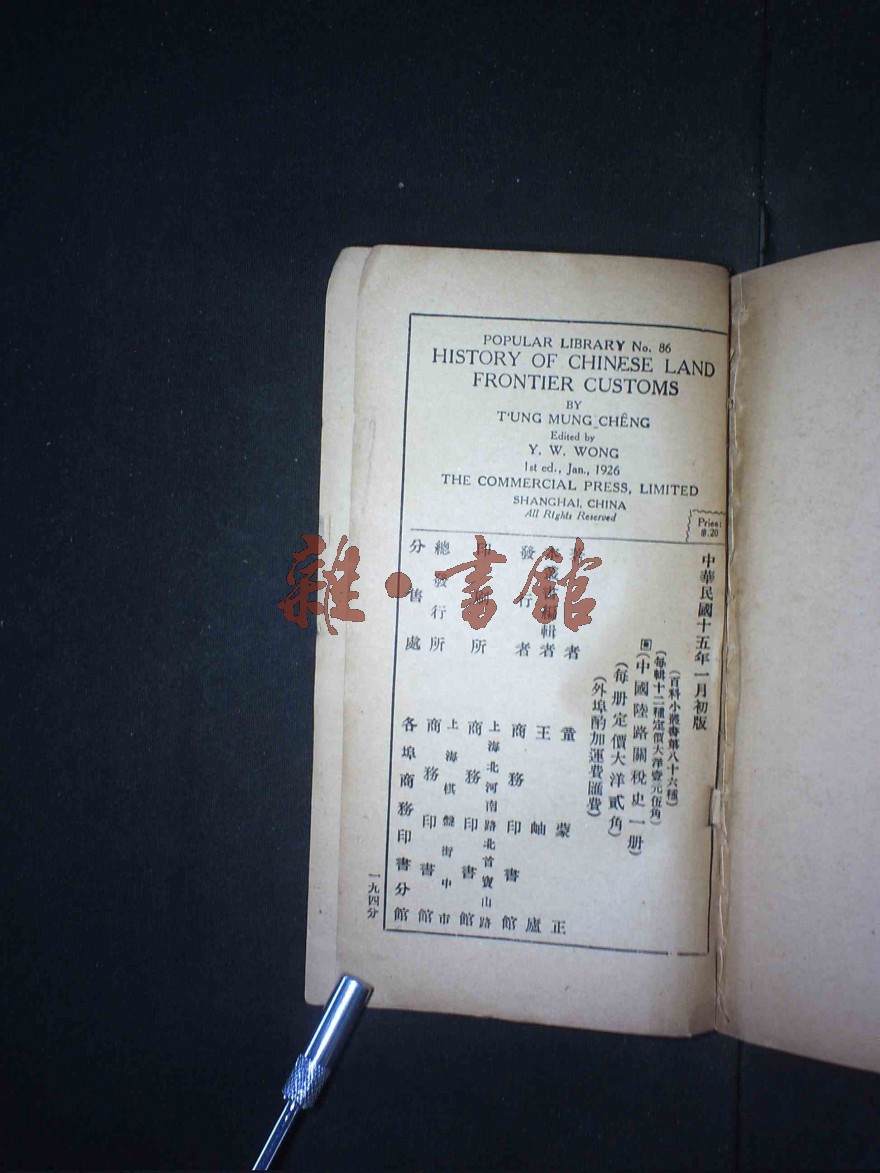 POPULAR LIBRARY No. 86
HISTORY OF CHINESE LAND
FRONTIER CUSTOMS
BY
T'UNG MUNG CHÊNG
Edited by
Y. W. WONG
1st ed., Jan., 1926
THE COMMERCIAL PRESS, LIMITED
SHANGHAI, CHINA
All Rights Reserved
Price:
$.20
中華民國十五年一月初版
(百科小叢書第八十六種)
(每輯十二種定價大洋壹元伍角)
(中國陸路關稅史一册)
(每册定價大洋貳角)
(外埠酌加運費匯費)
著者 童蒙正
編輯者 王岫廬
發行者 商務印書館
印刷所 上海北河南路北首寶山路 商務印書館
總發行所 上海棋盤街中市 商務印書館
分售處 各埠商務印書分館
一九四分
雜·書館